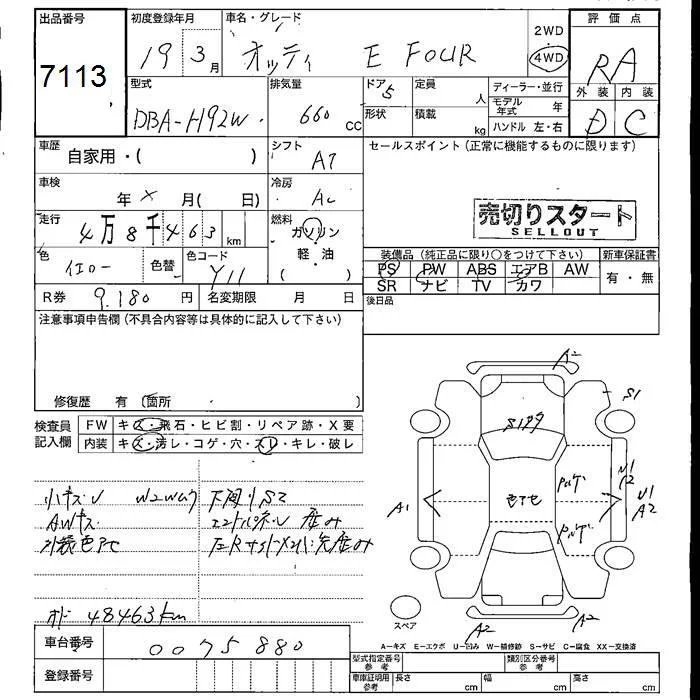 出品番号 初度登録年月 車名・グレード 評価点
7113 19 3月 オッティ E FOUR 2WD 4WD RA
型式 排気量 ドア 定員 ディーラー・並行 外装 内装
DBA-H92W 660 CC 5 人 モデル年式 年 D C
形状 積載 kg ハンドル 左・右
車歴 自家用・( ) シフト AT セールスポイント(正常に機能するものに限ります)
車検 年 × 月( 日) 冷房 AC
売切りスタート
SELLOUT
走行 4万8千463 km 燃料 ガソリン
軽・油
( )
色 イエロー 色替 色コード Y11
装備品(純正品に限り○をつけて下さい) 新車保証書
PS PW ABS エアB AW 有・無
SR ナビ TV カワ
R券 9.180 円 名変期限 月 日 後日品
注意事項申告欄(不具合内容等は具体的に記入して下さい)
修復歴 有 (箇所 )
検査員記入欄 FW キズ・飛石・ヒビ割・リペア跡・X要
内装 キズ・汚レ・コゲ・穴・スレ・キレ・破レ
小キズU 下廻りSC
AWキズ
外装色アセ
オド 48463km
車台番号 0075880
登録番号
A2
S1
A1
U1
A2
A2
A2
スペア
A-キズ E-エクボ U-凹み W-補修跡 S-サビ C-腐食 XX-交換済
型式指定番号 参考 類別区分番号 参考
車庫証明用 参考 長さ cm 幅 cm 高さ cm